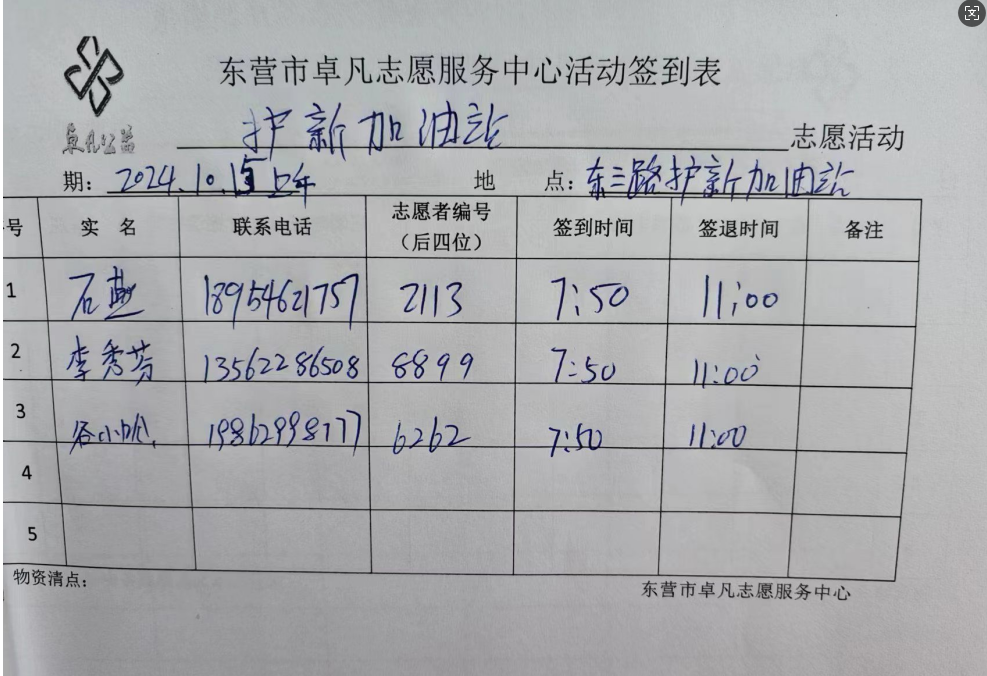 东营市卓凡志愿服务中心活动签到表
卓凡公益
护新加油站 志愿活动
期：2024.10.15上午 地 点：东三路护新加油站
号 实 名 联系电话 志愿者编号（后四位） 签到时间 签退时间 备注
1 石 18954621757 2113 7:50 11:00
2 李秀芬 13562286508 8899 7:50 11:00
3 谷小 19862998777 6262 7:50 11:00
4
5
物资清点：
东营市卓凡志愿服务中心